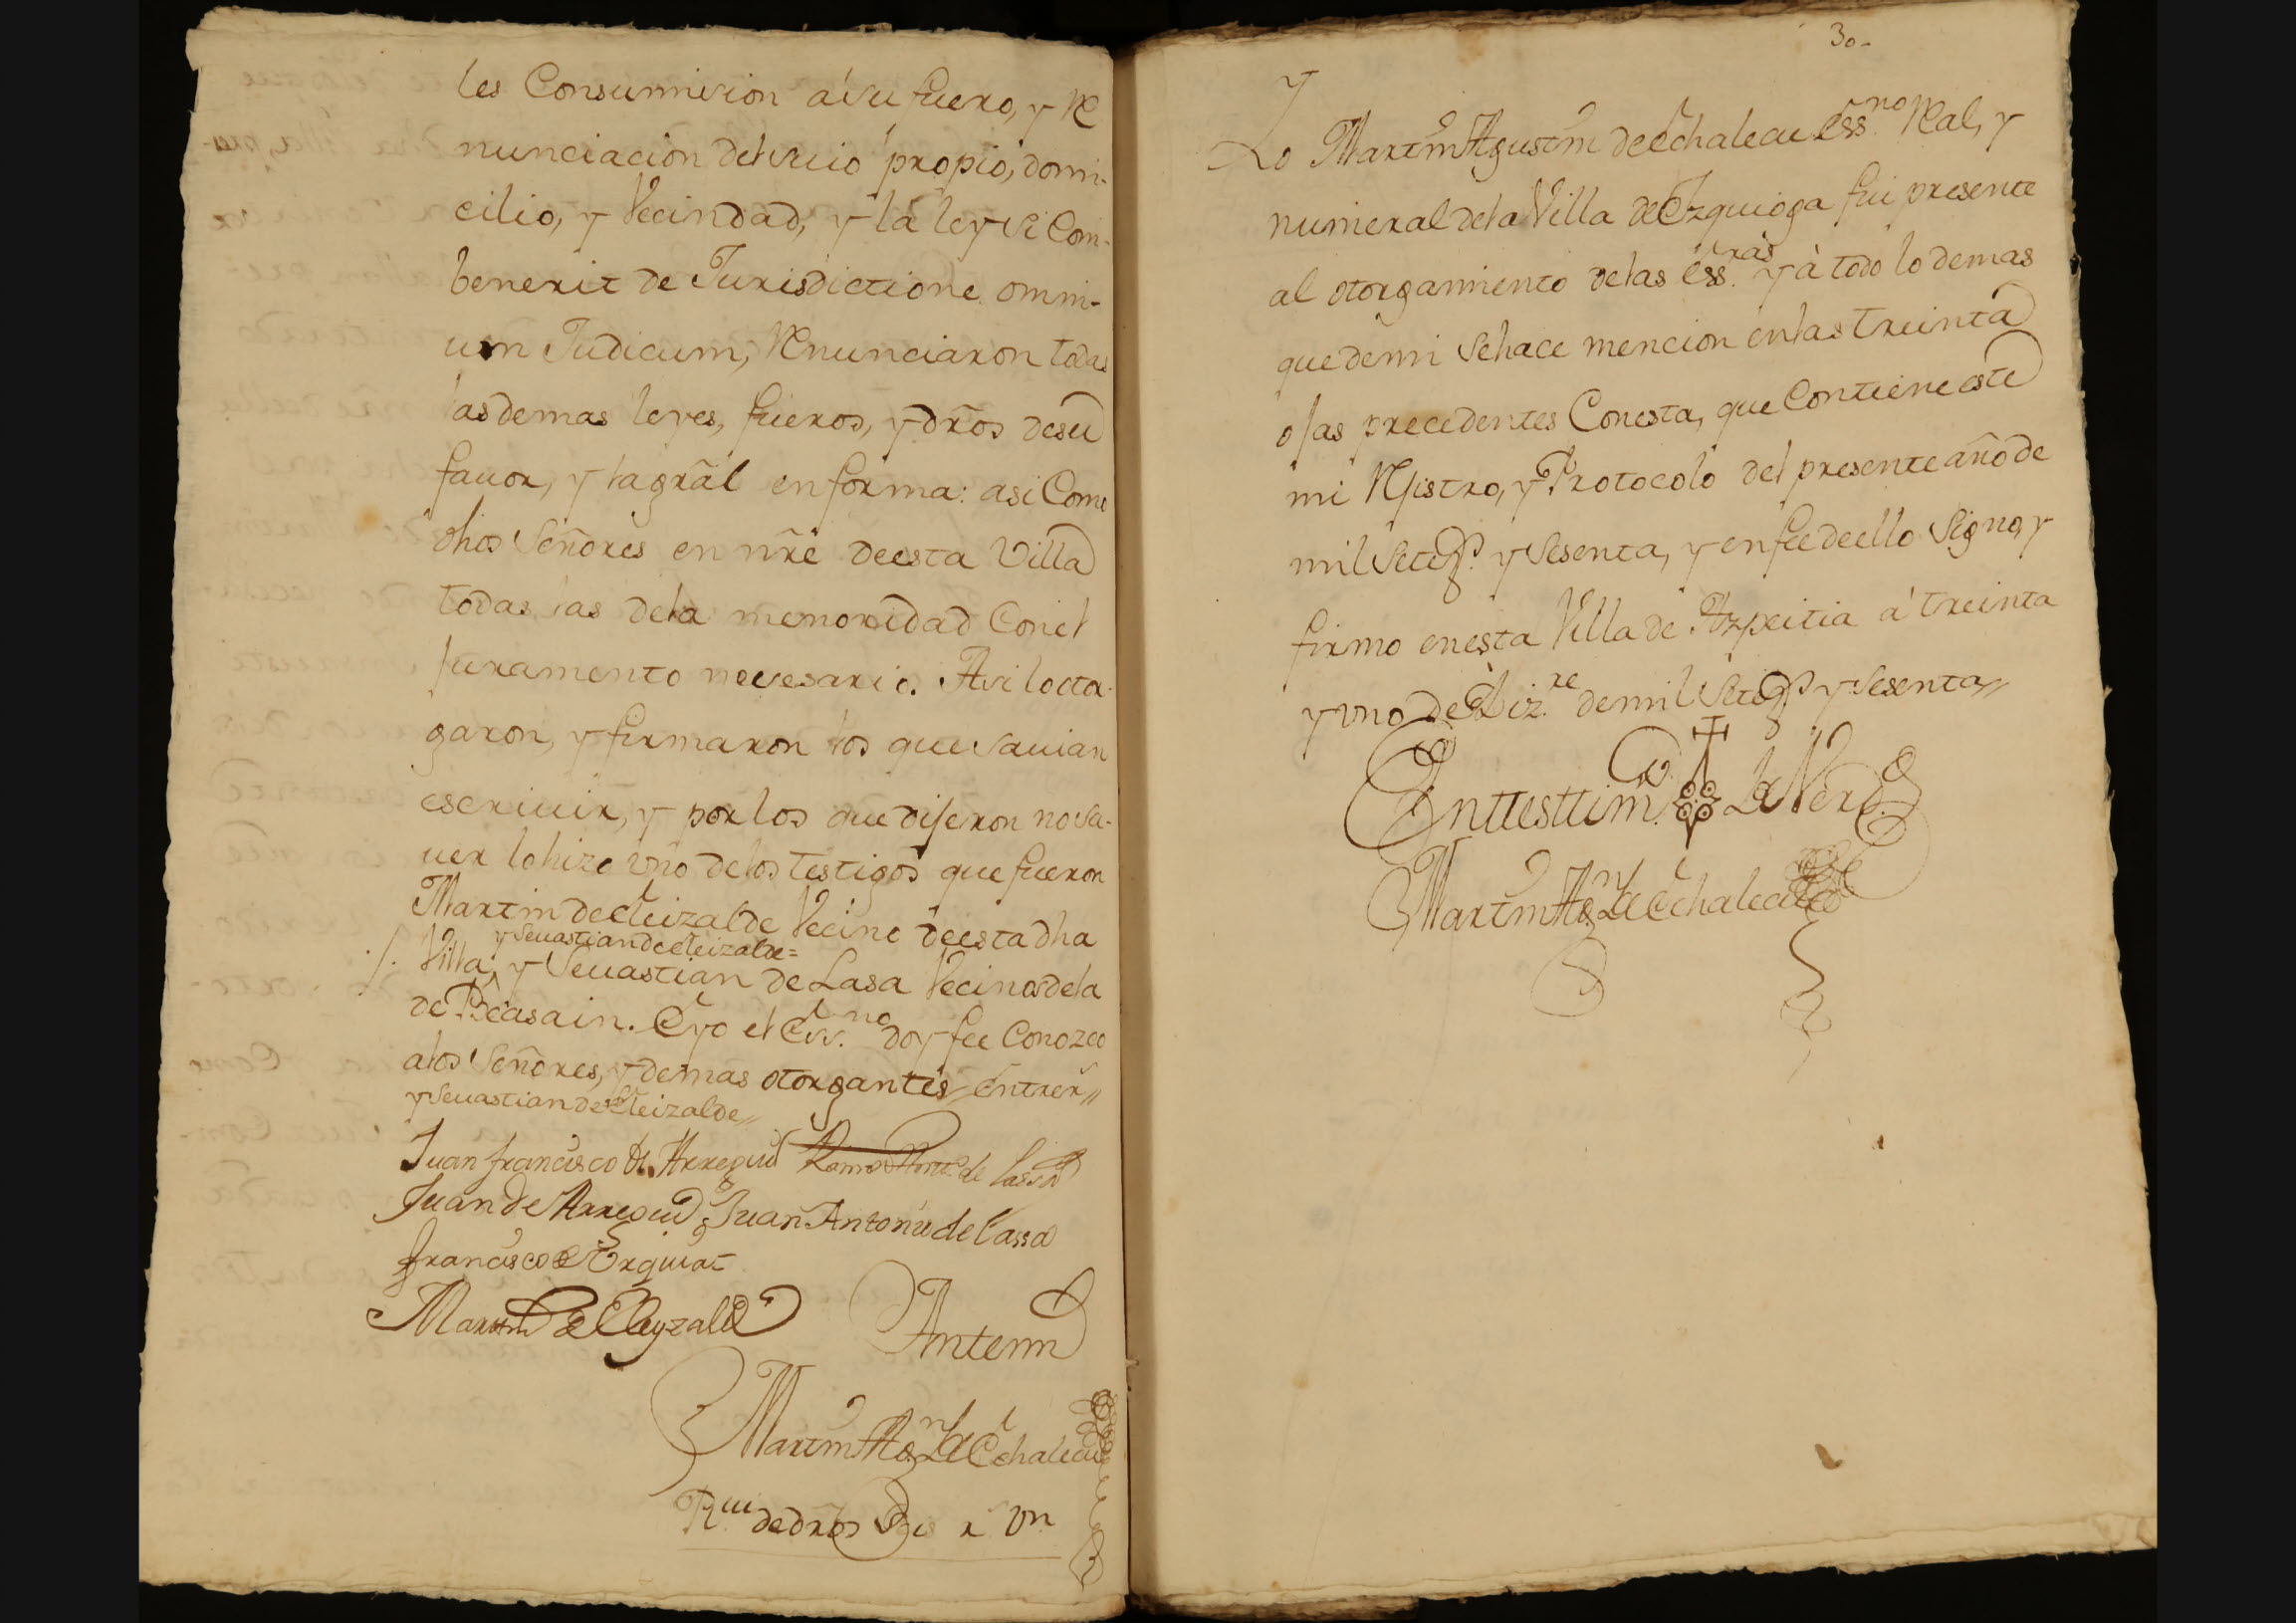 les Consumision à su fuero, y Re
nunciacion del suio propio, domi-
cilio, y Vecindad, y la ley si Com-
benerit de Jurisdictione omni-
um Judicum, Renunciaron todas
las demas leyes, fueros, y dr̃os de su
fauor, y la gr̃al en forma: asi Como
dhos Señores en nr̃e de esta Villa
todas las dela menoridad Con el
juramento necesario. Asi lo otor-
garon, y firmaron los que sauian
escriuir, y por los que dijeron no sa-
uer lo hizo vno de los testigos que fueron
Martin de Eleizalde Vecino de esta dha
y Seuastian de Eleizalde=
Villa, y Seuastian de Lasa Vecinos dela
de Beasain. E yo el Ess.no doy fee Conozco
a los Señores, y demas otorgantes, entrerr.
y Seuastian de Eleizalde
Juan francisco de Arregui Ramon Antt.º de Lassa
Juan de Arregui Juan Antonio de Lassa
francisco de Erguia
Martin de Eleyzalde
Antemi
Martin Ag.n de Echaleau
R.ui de dr̃os r. vn
30-
Yo Martin Agustin de Echaleau Ess.no Real, y
numeral dela Villa de Ezquioga fui presente
al otorgamiento delas ess.ras y à todo lo demas
que de mi se hace mencion en las treinta
ojas precedentes Con esta, que Contiene este
mi Rejistro, y Protocolo del presente año de
mil Setez.s y Sesenta, y en fee de ello Signo, y
firmo en esta Villa de Azpeitia à treinta
y vno de Diz.re de mil Setez.s y Sesenta
En ttesttim.º de Verd.
Martin Ag.n de Echaleau